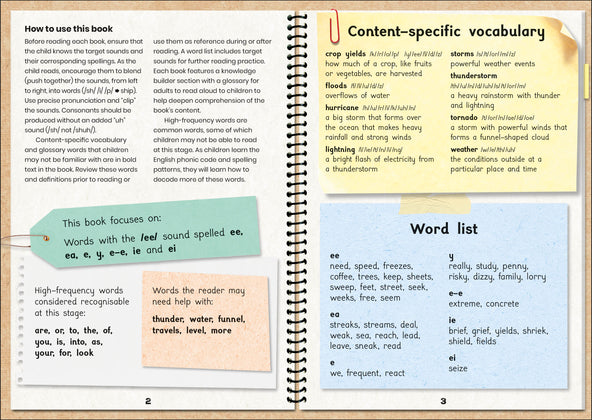 How to use this book
Before reading each book, ensure that
the child knows the target sounds and
their corresponding spellings. As the
child reads, encourage them to blend
(push together) the sounds, from left
to right, into words (/sh/ /i/ /p/ ● ship).
Use precise pronunciation and "clip"
the sounds. Consonants should be
produced without an added "uh"
sound (/sh/ not /shuh/).
Content-specific vocabulary
and glossary words that children
may not be familiar with are in bold
text in the book. Review these words
and definitions prior to reading or
use them as reference during or after
reading. A word list includes target
sounds for further reading practice.
Each book features a knowledge
builder section with a glossary for
adults to read aloud to children to
help deepen comprehension of the
book's content.
High-frequency words are
common words, some of which
children may not be able to read
at this stage. As children learn the
English phonic code and spelling
patterns, they will learn how to
decode more of these words.
This book focuses on:
Words with the /ee/ sound spelled ee,
ea, e, y, e-e, ie and ei
High-frequency words
considered recognisable
at this stage:
are, or, to, the, of,
you, is, into, as,
your, for, look
Words the reader may
need help with:
thunder, water, funnel,
travels, level, more
2
Content-specific vocabulary
crop yields
how much of a crop, like fruits
or vegetables, are harvested
floods
overflows of water
hurricane
a big storm that forms over
the ocean that makes heavy
rainfall and strong winds
lightning
a bright flash of electricity from
a thunderstorm
storms
powerful weather events
thunderstorm
a heavy rainstorm with thunder
and lightning
tornado
a storm with powerful winds that
forms a funnel-shaped cloud
weather
the conditions outside at a
particular place and time
Word list
ee
need, speed, freezes,
coffee, trees, keep, sheets,
sweep, feet, street, seek,
weeks, free, seem
ea
streaks, streams, deal,
weak, sea, reach, lead,
leave, sneak, read
e
we, frequent, react
y
really, study, penny,
risky, dizzy, family, lorry
e-e
extreme, concrete
ie
brief, grief, yields, shriek,
shield, fields
ei
seize
3